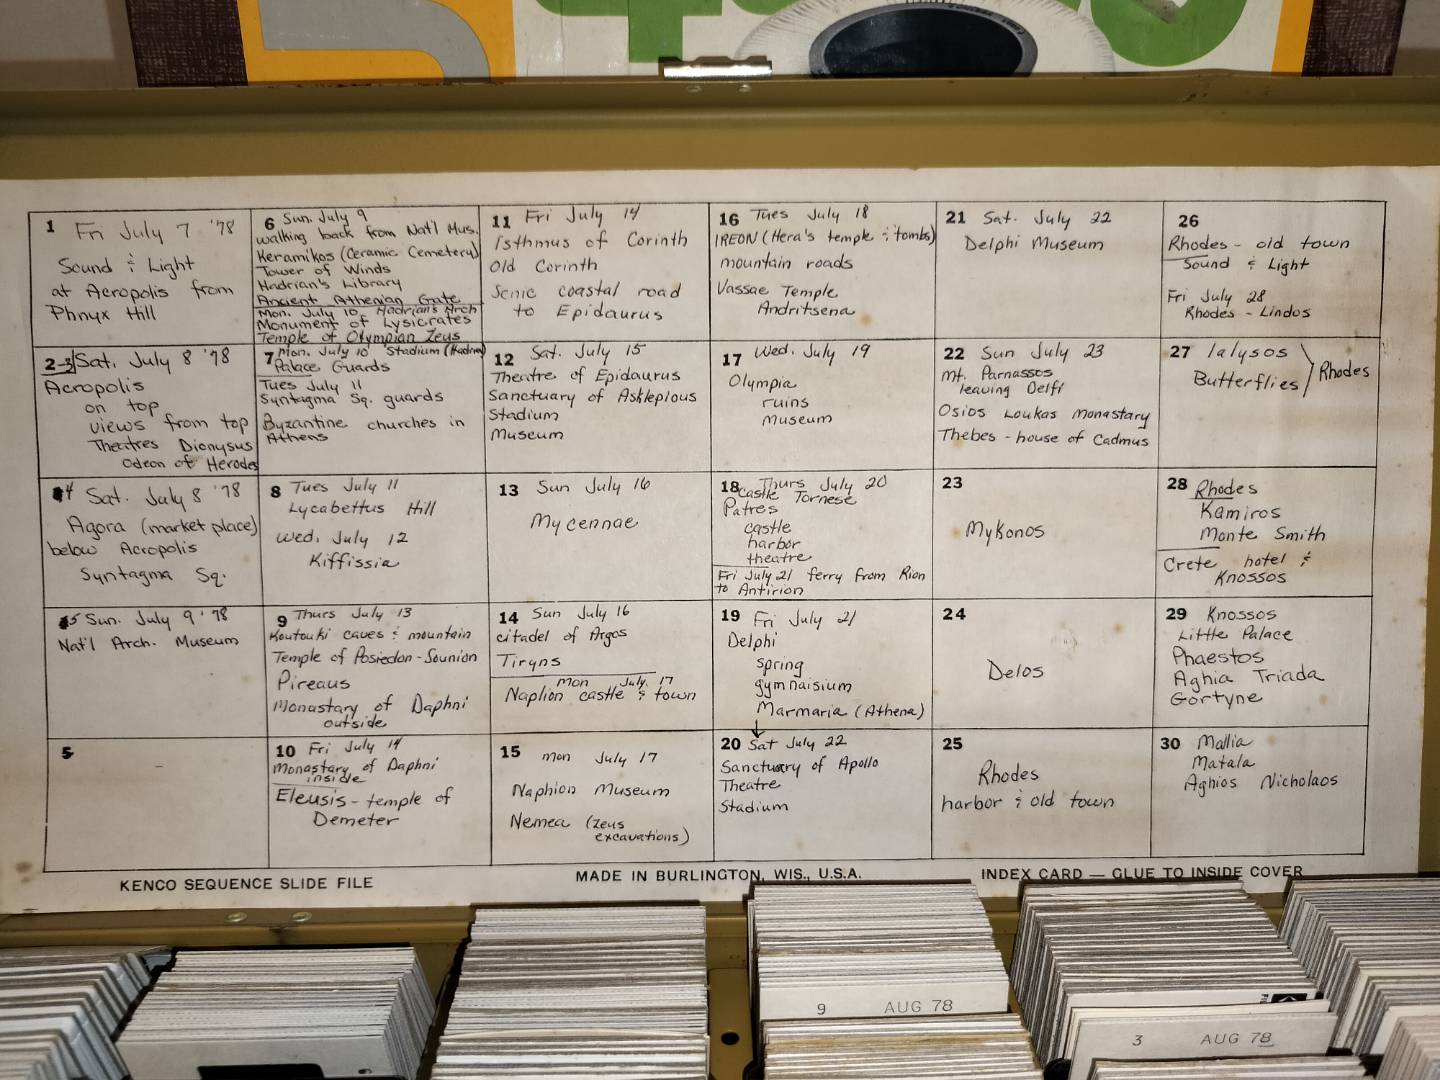 1 Fri July 7 '78
Sound & Light
at Acropolis from
Phnyx Hill
2-3 Sat. July 8 '78
Acropolis
on top
views from top
Theatres Dionysus
Odeon of Herodes
4 Sat. July 8 '78
Agora (market place)
below Acropolis
Syntagma Sq.
5 Sun. July 9 '78
Nat'l Arch. Museum
5
6 Sun. July 9
walking back from Nat'l Mus.
Keramikos (Ceramic Cemetery)
Tower of Winds
Hadrian's Library
Ancient Athenian Gate
Mon. July 10 Hadrian's Arch
Monument of Lysicrates
Temple of Olympian Zeus
7 Mon. July 10 Stadium
Palace Guards
Tues July 11
Syntagma Sq. guards
Byzantine churches in
Athens
8 Tues July 11
Lycabettus Hill
Wed. July 12
Kiffissia
9 Thurs July 13
Koutouki caves & mountain
Temple of Posiedon - Sounion
Pireaus
Monastary of Daphni
outside
10 Fri July 14
Monastary of Daphni
inside
Eleusis - temple of
Demeter
11 Fri July 14
Isthmus of Corinth
Old Corinth
Scnic coastal road
to Epidaurus
12 Sat. July 15
Theatre of Epidaurus
Sanctuary of Asklepious
Stadium
Museum
13 Sun July 16
Mycennae
14 Sun July 16
citadel of Argos
Tiryns
Mon July 17
Naplion castle & town
15 Mon July 17
Naphion Museum
Nemea (Zeus
excavations)
16 Tues July 18
IREON (Hera's temple & tombs)
mountain roads
Vassae Temple
Andritsena
17 Wed. July 19
Olympia
ruins
Museum
18 Thurs July 20
Castle Tornese
Patres
castle
harbor
theatre
Fri July 21 ferry from Rion
to Antirion
19 Fri July 21
Delphi
spring
gymnaisium
Marmaria (Athena)
20 Sat July 22
Sanctuary of Apollo
Theatre
Stadium
21 Sat. July 22
Delphi Museum
22 Sun July 23
Mt. Parnassos
leaving Delfi
Osios Loukas Monastary
Thebes - house of Cadmus
23
Mykonos
24
Delos
25
Rhodes
harbor & old town
26
Rhodes - old town
Sound & Light
Fri July 28
Rhodes - Lindos
27 Ialysos
Butterflies Rhodes
28 Rhodes
Kamiros
Monte Smith
Crete hotel &
Knossos
29 Knossos
Little Palace
Phaestos
Aghia Triada
Gortyne
30 Mallia
Matala
Aghios Nicholaos
KENCO SEQUENCE SLIDE FILE MADE IN BURLINGTON, WIS., U.S.A. INDEX CARD — GLUE TO INSIDE COVER
9 AUG 78
3 AUG 78